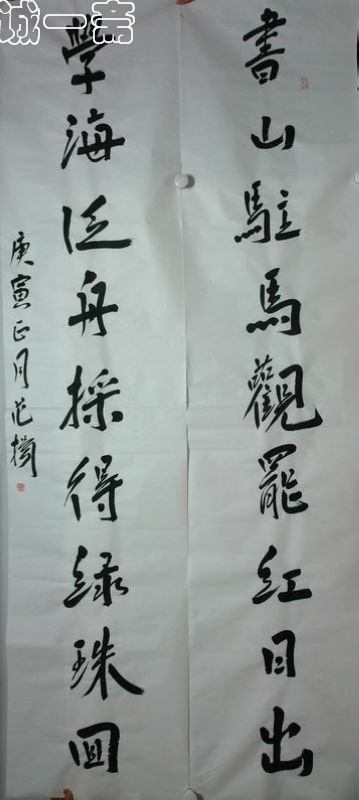 書山駐馬觀罷紅日出
學海泛舟採得綠珠回
庚寅正月范
誠一斋